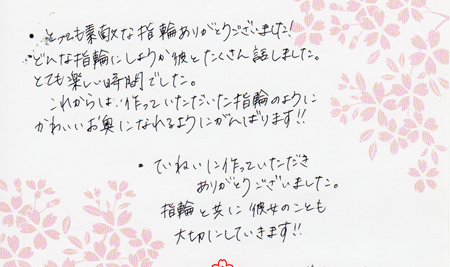 ・とっても素敵な指輪ありがとうございました!
どんな指輪にしようか彼とたくさん話しました。
とても楽しい時間でした。
これからは、作っていただいた指輪のように
かわいいお奥になれるようにがんばります!!
・ていねいに作っていただき
ありがとうございました。
指輪と共に彼女のことも
大切にしていきます!!